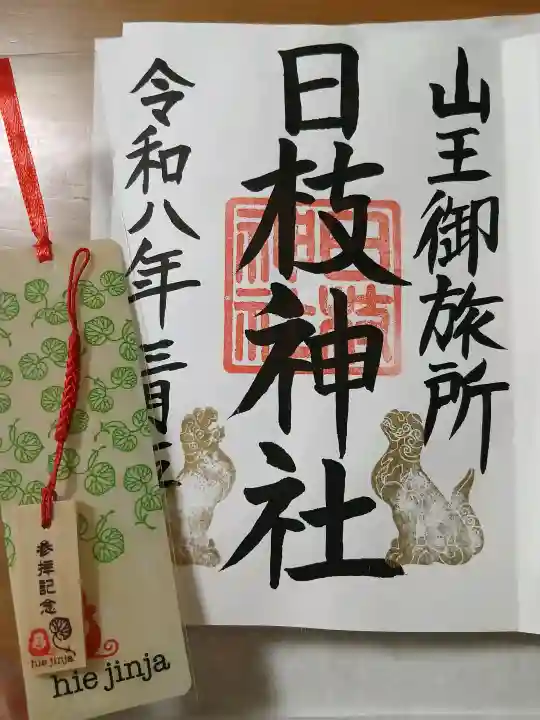 山王御旅所
日枝神社
令和八年三月五
日枝神社
参拝記念
hie jinja
hie jinja